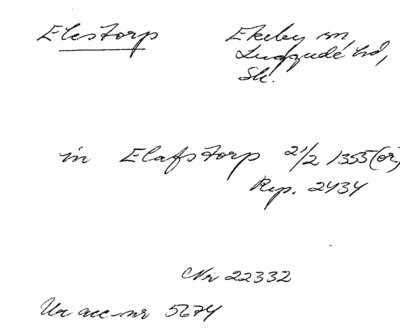 Elestorp Ekeby sn,
Luggude hd,
Sk.
in Elafstorp 21/2 1355 (or)
Rep. 2434
Nr 22332
Ur acc-nr 5674